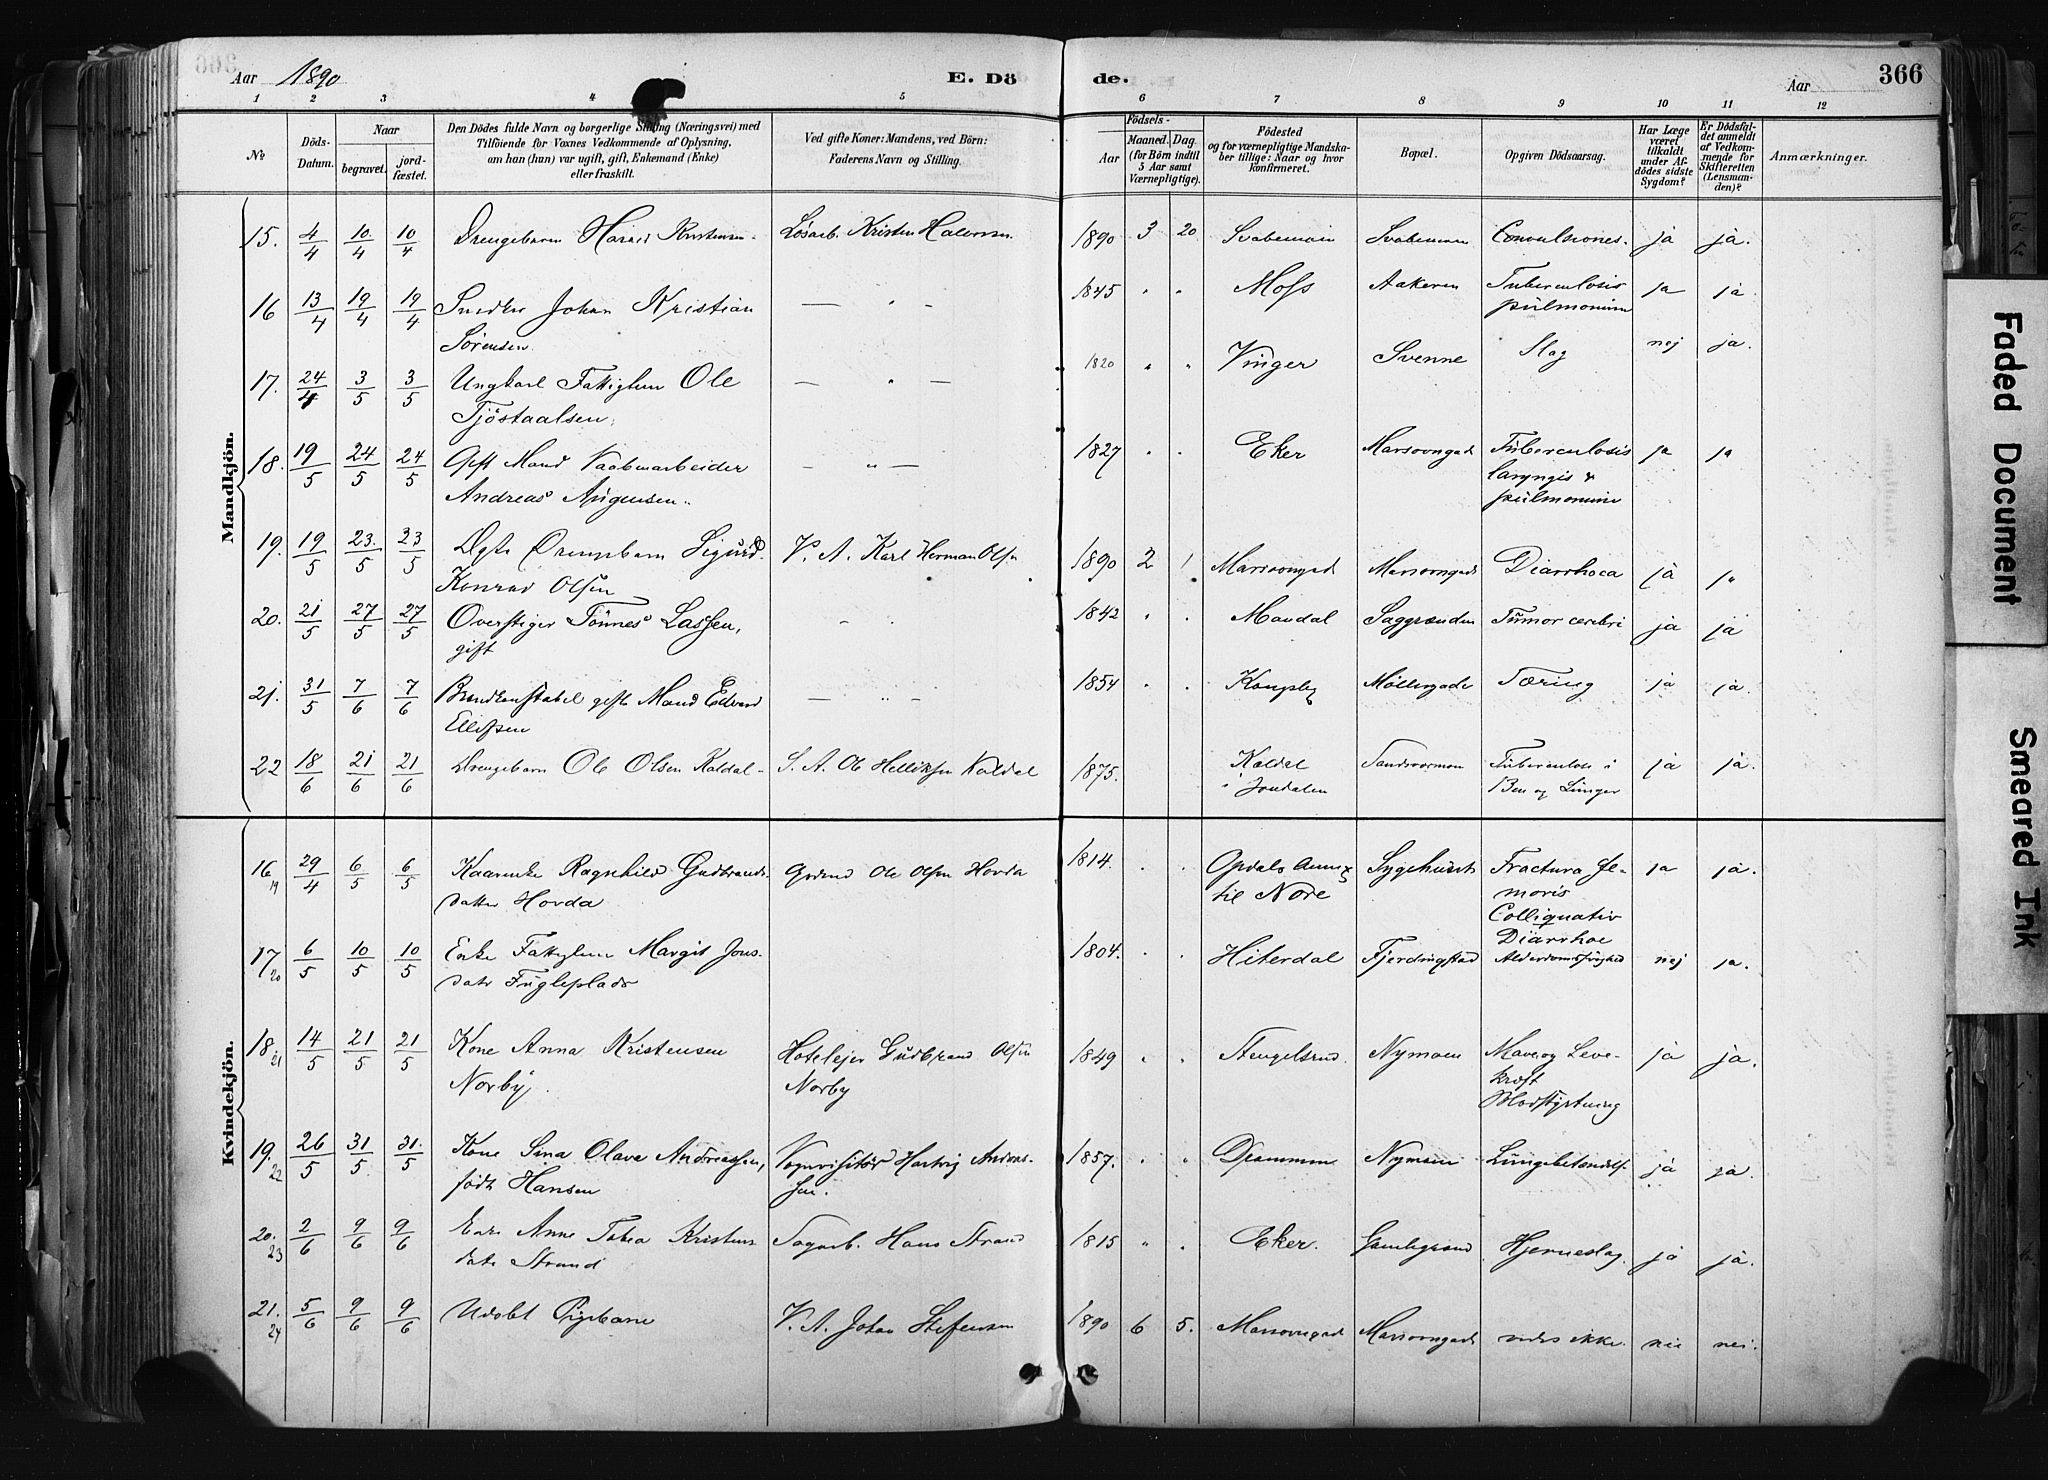 Aar 1890
E. Dö
de.
Aar
366
1 2 3 4 5 6 7 8 9 10 11 12
№
Döds-
Datum.
Naar
begravet.
jord-
fæstet.
Den Dödes fulde Navn og borgerlige Stilling (Næringsvei) med
Tilföiende for Voxnes Vedkommende af Oplysning,
om han (hun) var ugift, gift, Enkemand (Enke)
eller fraskilt.
Ved gifte Koner: Mandens, ved Börn:
Faderens Navn og Stilling.
Födsels-
Aar
Maaned.
Dag.
(for Börn indtil
5 Aar samt
Værnepligtige).
Födested
og for værnepligtige Mandska-
ber tillige: Naar og hvor
konfirmeret.
Bopæl.
Opgiven Dödsaarsag.
Har Læge
været
tilkaldt
under Af-
dödes sidste
Sygdom?
Er Dödsfal-
det anmeldt
af Vedkom-
mende for
Skifteretten
(Lensman-
den)?
Anmærkninger.
Mandkjön.
15. 4/4 10/4 10/4 Drengebarn Kristensen Lösarb. Kristen Halvorsen 1890 3 20. Svabemoen Svabemoen Convulsiones ja ja.
16 13/4 19/4 19/4 Snedker Johan Kristian — " — 1845 " " Moss Aakeren Tuberculosis ja ja
Sörensen. pulmonum
17. 24/4 3/5 3/5 Ungkarl Fattiglem Ole — " — 1820 " " Vinger Svenne Slag nej ja.
Tjöstaalsen.
18. 19/5 24/5 24/5 Gift Mand Vaabenarbeider — " — 1827 " " Eker Marsovngad Tuberculosis ja ja
Andreas Jörgensen laryngis &
pulmonum
19. 19/5 23/5 23/5 Ægte Drengebarn Sigurd V. A. Karl Herman Olsen 1890 2 1 Marsovngad Marsovngad Diarrhoea ja "
Konrad Olsen
20. 21/5 27/5 27/5 Overstiger Tönnes Lassen, 1842 " " Mandal Saggrenden Tumor cerebri ja ja
gift
21. 31/5 7/6 7/6 Brandkonstabel gifte Mand Edvard — " — 1854 " " Kongsbg Möllergade Tæring ja ja.
Ellefsen
22 18/6 21/6 21/6 Drengebarn Ole Olsen Kaldal S. A. Ole Helliksen Kaldal 1875. Kaldal Sandsværmoen Tuberculose i ja ja.
i Jondalen Ben og Lunger
Kvindekjön.
16 19 29/4 6/5 6/5 Kaarenke Ragnhild Gudbrands- Grdmd Ole Olsen Hovda 1814. " " Opdals Annex Sygehuset Fractura fe- ja ja.
datter Hovda til Nore moris
Colliquativ
Diarrhoe
17 20 6/5 10/5 10/5 Enke Fattiglem Margit Jons- 1804. " " Hiterdal Fjerdingstad Alderdomssvaghed nej ja.
datr Fugleplads
18 21 14/5 21/5 21/5 Kone Anna Kristensen Hotelejer Gudbrand Olsen 1849 " " Stengelsrud Nymoen Mave og Leve- ja ja.
Norby. Norby kræft
Blodstyrtning
19. 22 26/5 31/5 31/5 Kone Lina Olava Andreassen, Vognvisitör Hartvig Andreas- 1857. " " Drammen Nymoen Lungebetændelse ja ja.
födt Hansen sen.
20. 23 2/6 9/6 9/6 Enke Anne Tabea Kristens Sagarb. Hans Strand 1815 " " Eker. Gamlegrend Hjerneslag. ja ja.
datr Strand
21. 24 5/6 9/6 9/6 Udöbt Pigebarn V. A. Johan Stefensen 1890 6 5. Marsovngad Marsovngad vides ikke. nei nei.
Faded Document
Smeared Ink